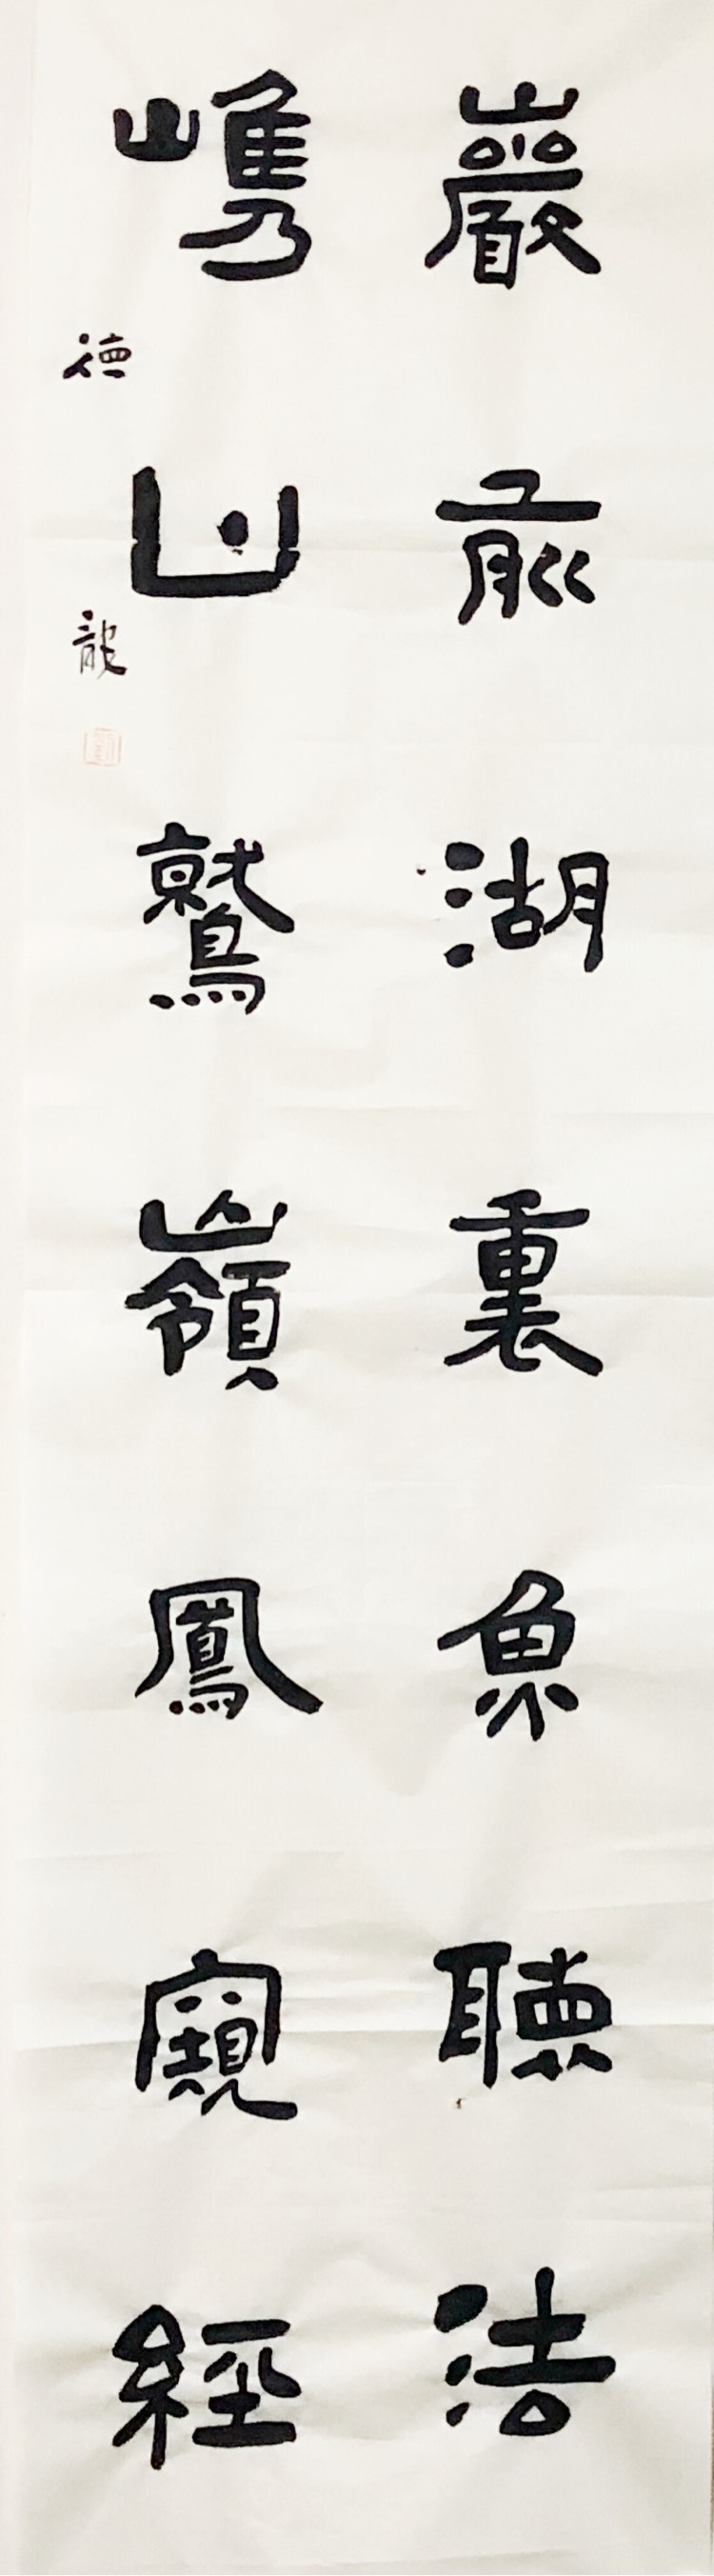 巖前湖裏魚聽法
山鷲嶺鳳窺經
德龍